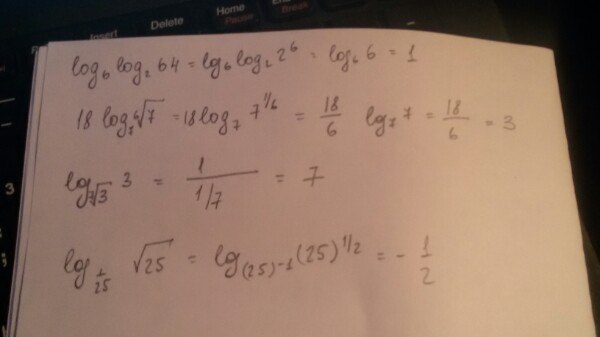 Insert
Delete
Home
Pause
Break
log₆ log₂ 64 = log₆ log₂ 2⁶ = log₆ 6 = 1
18 log₇ ⁶√7 = 18 log₇ 7^1/6 = 18/6 log₇ 7 = 18/6 = 3
log_⁷√3 3 = 1/(1/7) = 7
log_1/25 √25 = log_(25)-1 (25)^1/2 = - 1/2
3